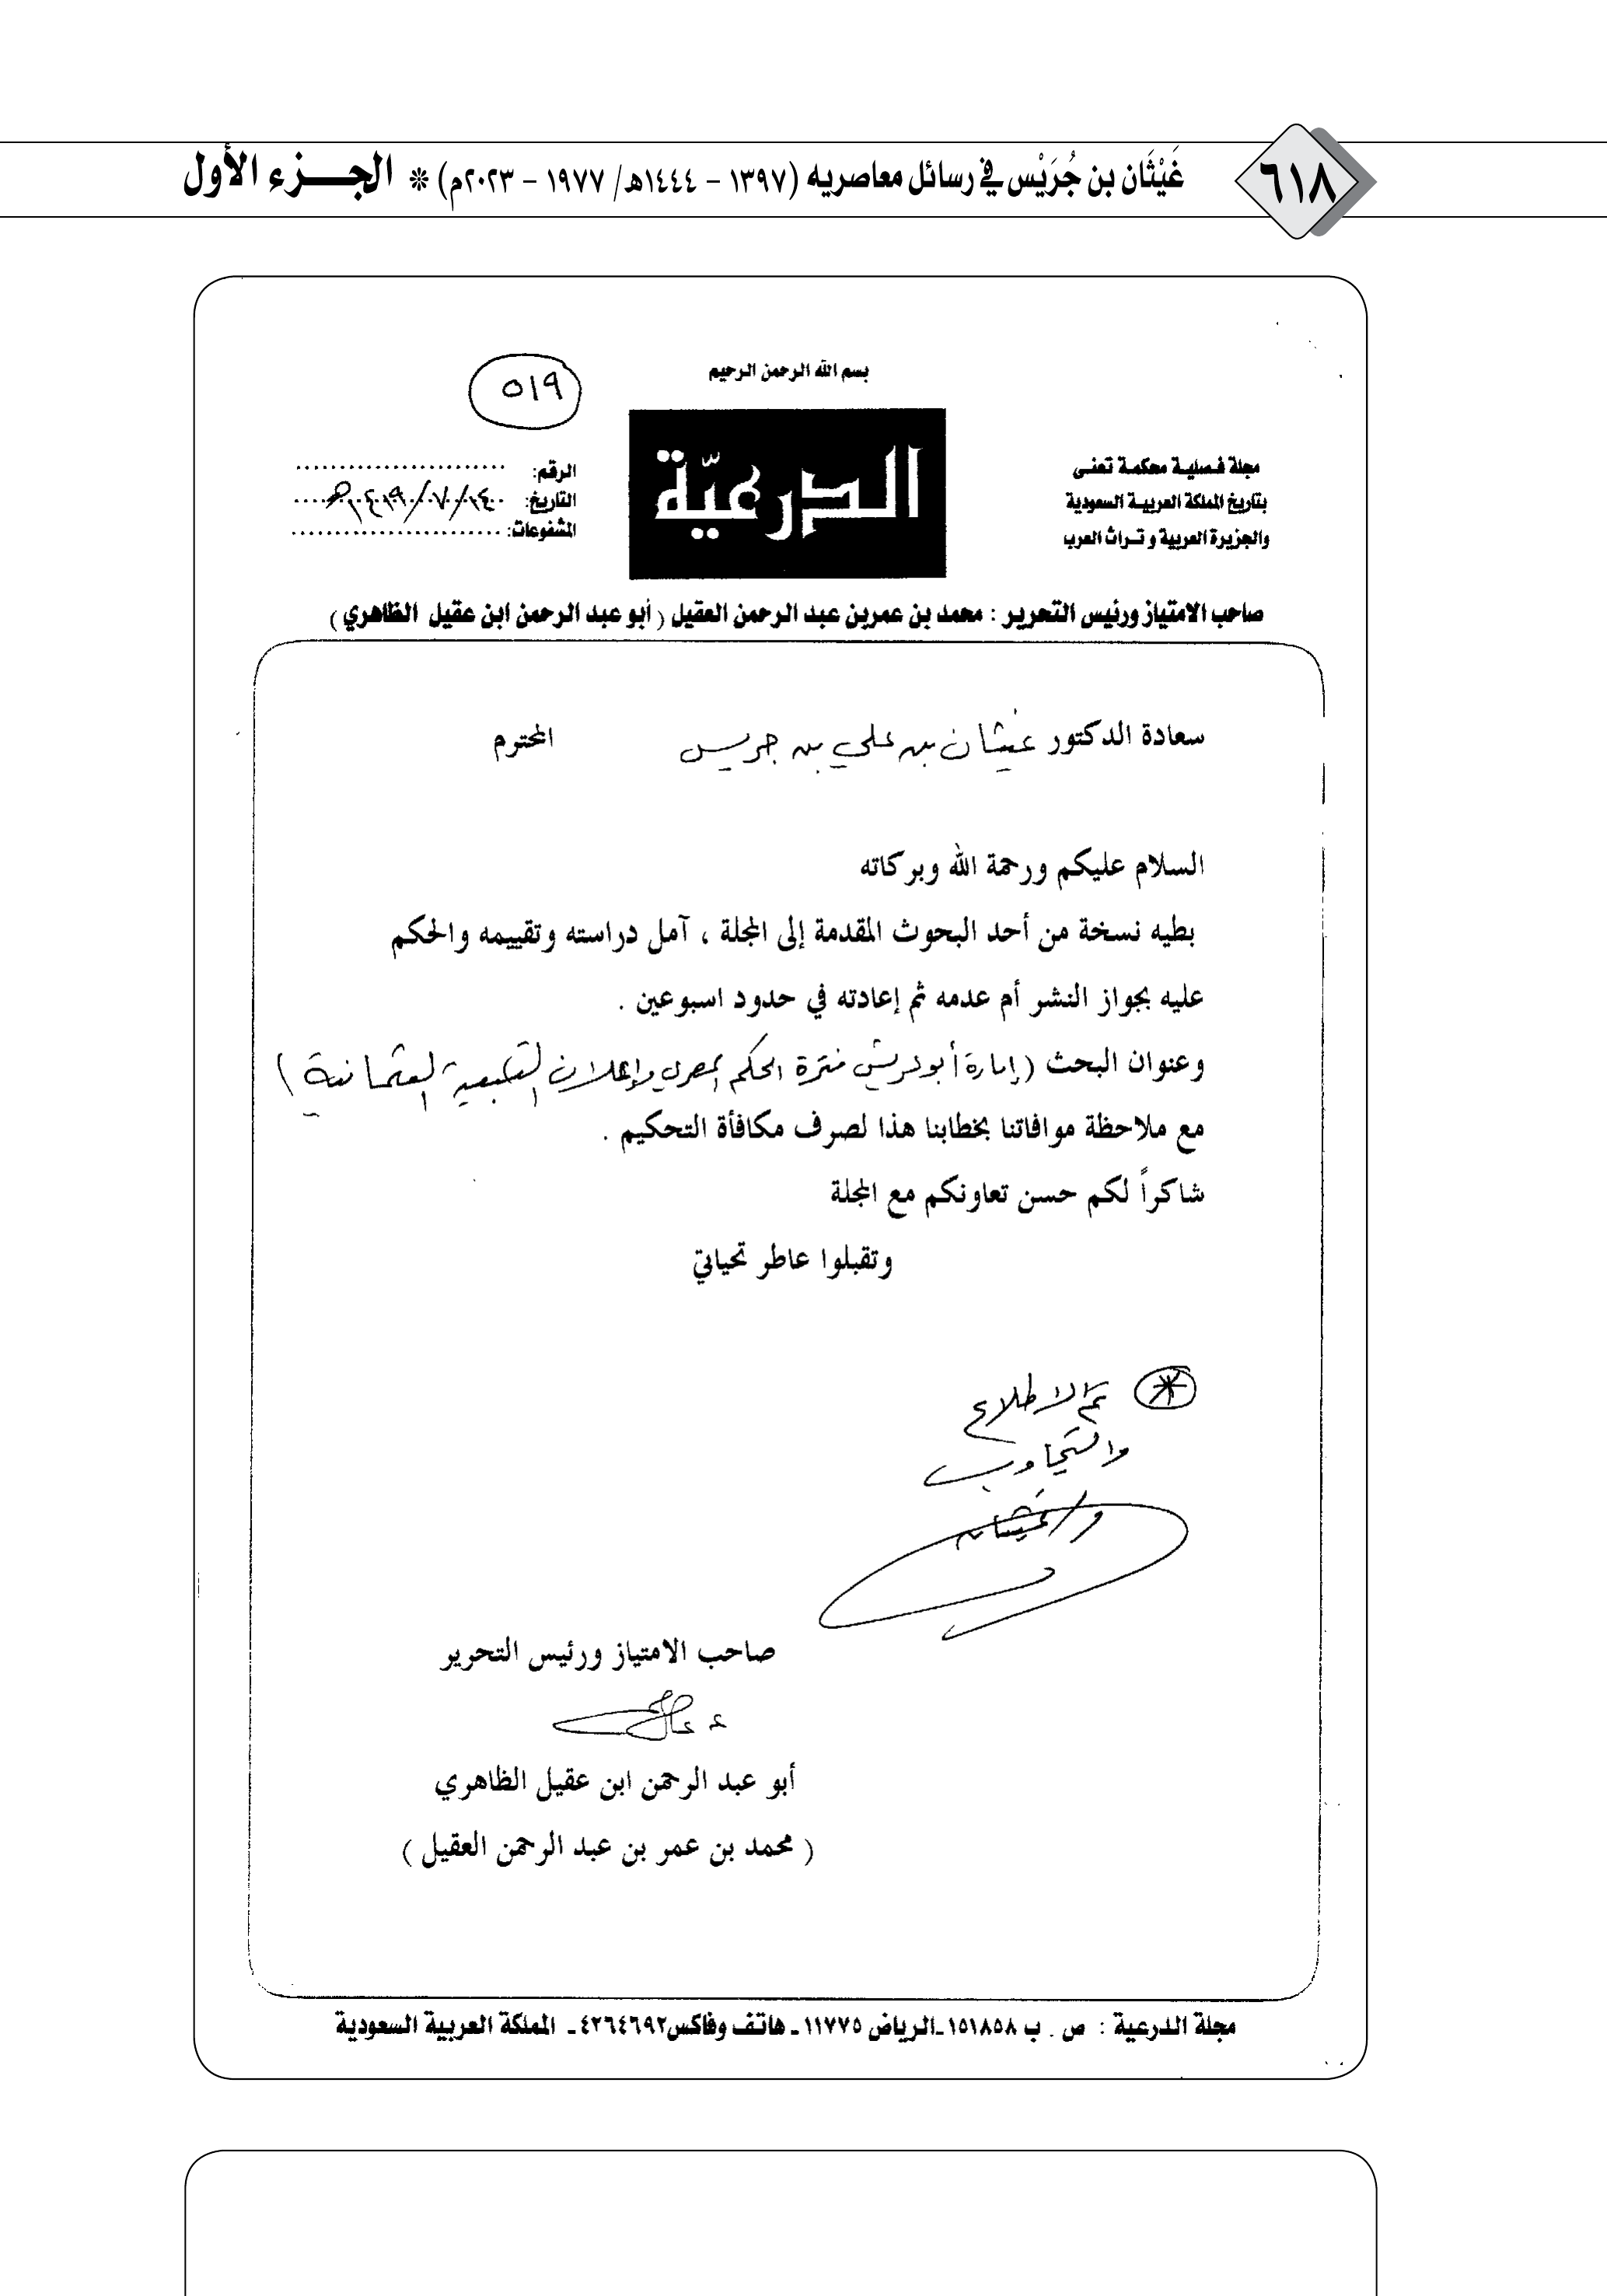 ٦١٨
غَيْثَان بن جُرَيْس في رسائل معاصريه (١٣٩٧ – ١٤٤٤هـ/ ١٩٧٧ – ٢٠٢٣م) * الجزء الأول
٥١٩
بسم الله الرحمن الرحيم
الدرعيّة
مجلة فصلية محكمة تعنى
بتاريخ المملكة العربية السعودية
والجزيرة العربية وتراث العرب
الرقم:
التاريخ: ١٤١٩/٠٧/١٤هـ
المشفوعات:
صاحب الامتياز ورئيس التحرير : محمد بن عمر بن عبد الرحمن العقيل ( أبو عبد الرحمن ابن عقيل الظاهري )
سعادة الدكتور غيثان بن علي بن جريس المحترم
السلام عليكم ورحمة الله وبركاته
بطيه نسخة من أحد البحوث المقدمة إلى المجلة ، آمل دراسته وتقييمه والحكم
عليه بجواز النشر أم عدمه ثم إعادته في حدود اسبوعين .
وعنوان البحث (إمارة أبو عريش فترة الحكم المصري وإعلان التبعية العثمانية)
مع ملاحظة موافاتنا بخطابنا هذا لصرف مكافأة التحكيم .
شاكراً لكم حسن تعاونكم مع المجلة
وتقبلوا عاطر تحياتي
* تم الاطلاع
والتجاوب
د/ غيثان
صاحب الامتياز ورئيس التحرير
أبو عبد الرحمن ابن عقيل الظاهري
( محمد بن عمر بن عبد الرحمن العقيل )
مجلة الدرعية : ص . ب ١٥١٨٥٨ ـ الرياض ١١٧٧٥ ـ هاتف وفاكس ٤٢٦٤٦٩٢ ـ المملكة العربية السعودية